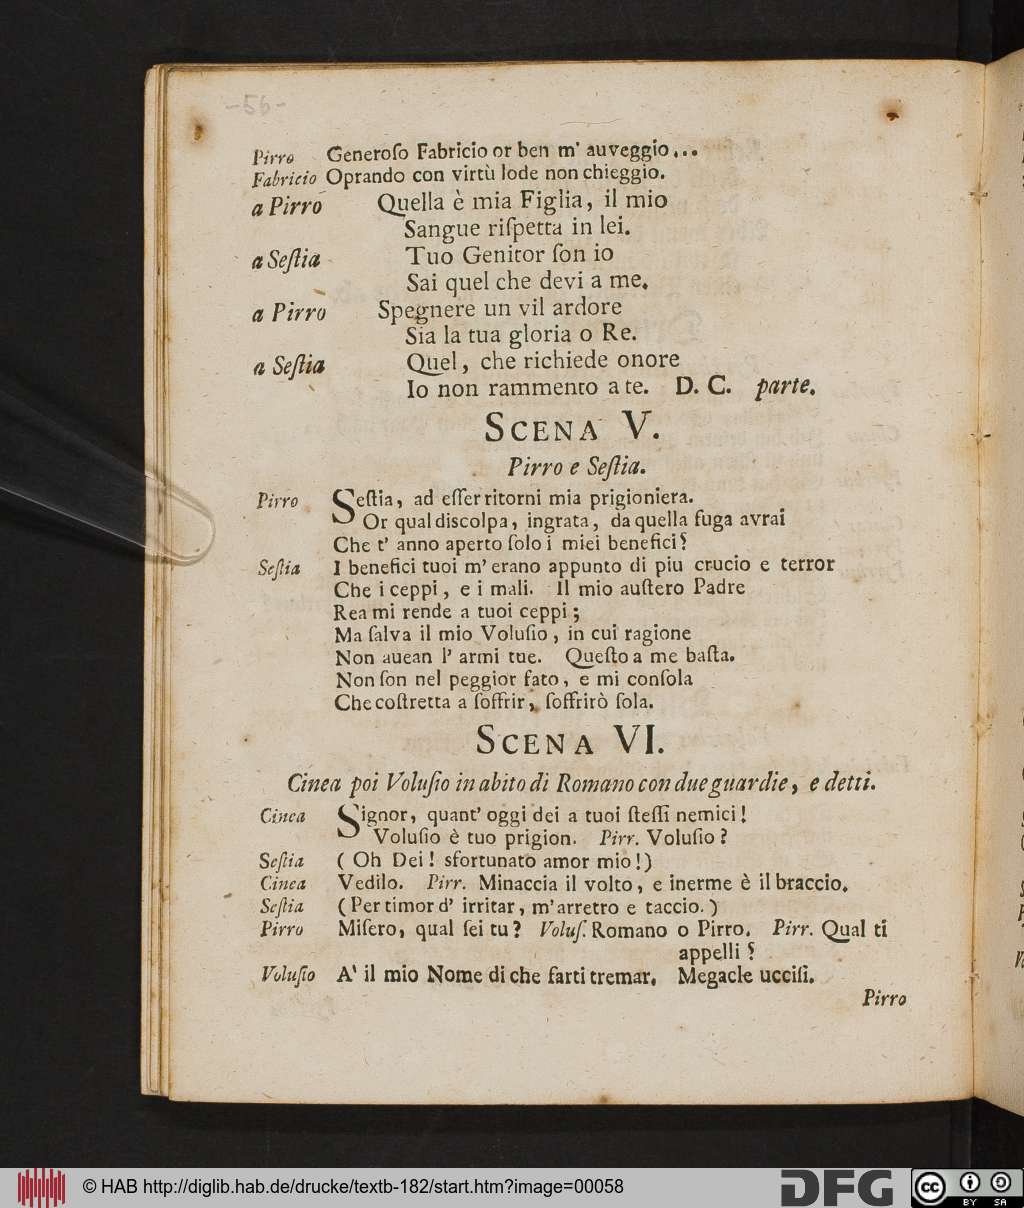 -56-
Pirro Generoſo Fabricio or ben m' auveggio...
Fabricio Oprando con virtù lode non chieggio.
a Pirro Quella è mia Figlia, il mio
Sangue riſpetta in lei.
a Seſtia Tuo Genitor ſon io
Sai quel che devi a me.
a Pirro Spegnere un vil ardore
Sia la tua gloria o Re.
a Seſtia Quel, che richiede onore
Io non rammento a te. D. C. parte.
SCENA V.
Pirro e Seſtia.
Pirro Seſtia, ad eſſer ritorni mia prigioniera.
Or qual discolpa, ingrata, da quella fuga avrai
Che t' anno aperto ſolo i miei benefici?
Seſtia I benefici tuoi m' erano appunto di piu crucio e terror
Che i ceppi, e i mali. Il mio auſtero Padre
Rea mi rende a tuoi ceppi;
Ma ſalva il mio Voluſio, in cui ragione
Non auean l' armi tue. Queſto a me baſta.
Non ſon nel peggior fato, e mi conſola
Che coſtretta a ſoffrir, ſoffrirò ſola.
SCENA VI.
Cinea poi Voluſio in abito di Romano con due guardie, e detti.
Cinea Signor, quant' oggi dei a tuoi ſteſſi nemici!
Voluſio è tuo prigion. Pirr. Voluſio?
Seſtia (Oh Dei! sfortunato amor mio!)
Cinea Vedilo. Pirr. Minaccia il volto, e inerme è il braccio.
Seſtia (Per timor d' irritar, m' arretro e taccio.)
Pirro Miſero, qual ſei tu? Voluſ. Romano o Pirro. Pirr. Qual ti
appelli?
Voluſio A' il mio Nome di che farti tremar. Megacle ucciſi.
Pirro
© HAB http://diglib.hab.de/drucke/textb-182/start.htm?image=00058
DFG
cc BY SA